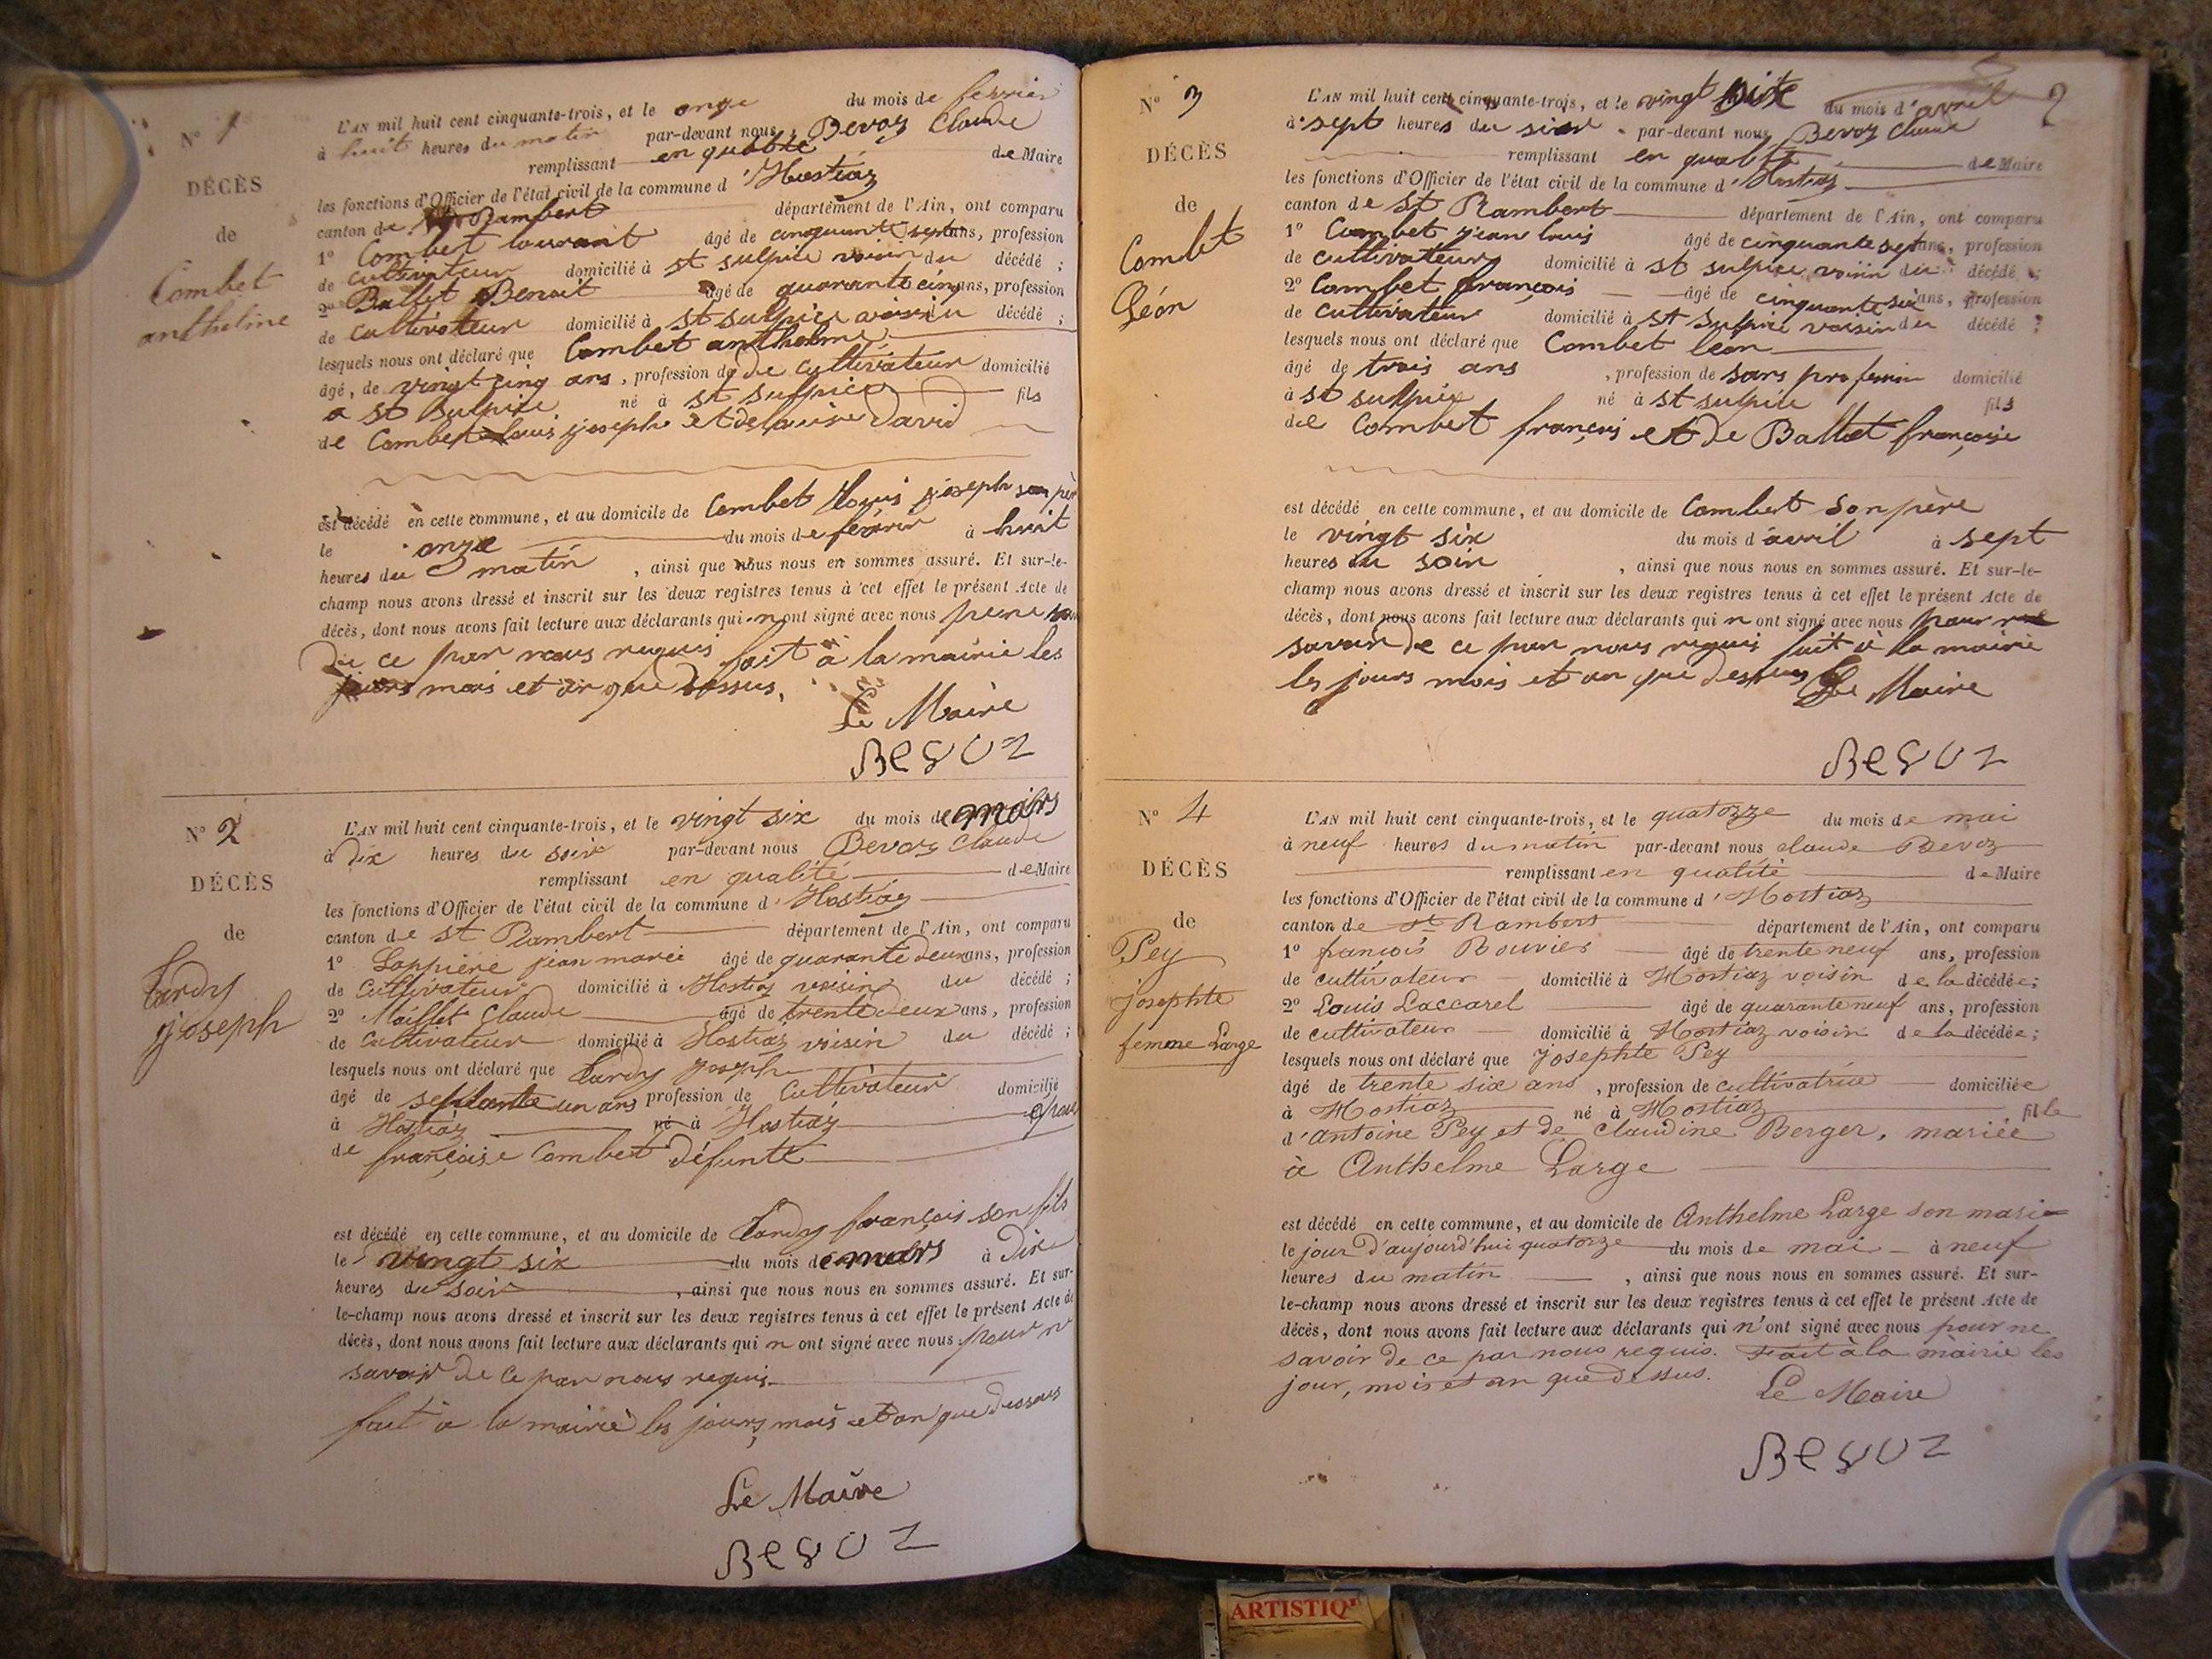 N° 1
DÉCÈS
de
Combet
anthelme
L'AN mil huit cent cinquante-trois, et le onze du mois de fevrier
à huit heures du matin par-devant nous, Bevoz Claude
remplissant en qualité de Maire
les fonctions d'Officier de l'état civil de la commune d'Hostiaz
canton de Rambert département de l'Ain, ont comparu
1° Combet laurant âgé de cinquante sept ans, profession
de cultivateur domicilié à st sulpice voisin du décédé ;
2° Ballet Benoit âgé de quarante cinq ans, profession
de cultivateur domicilié à st sulpice voisin décédé ;
lesquels nous ont déclaré que Combet anthelme
âgé, de vingt cinq ans, profession de de cultivateur domicilié
a st sulpice né à st sulpice fils
de Combet louis joseph et de David
est décédé en cette commune, et au domicile de Combet louis joseph son père
le onze du mois de à huit
heures du matin, ainsi que nous nous en sommes assuré. Et sur-le-
champ nous avons dressé et inscrit sur les deux registres tenus à cet effet le présent Acte de
décès, dont nous avons fait lecture aux déclarants qui n ont signé avec nous
de ce par nous requis fait à la mairie les
jours mois et an que dessus.
Le Maire
BEVOZ
N° 2
DÉCÈS
de
Tardy
joseph
L'AN mil huit cent cinquante-trois, et le vingt six du mois de mars
à dix heures du soir par-devant nous Bevoz Claude
remplissant en qualité de Maire
les fonctions d'Officier de l'état civil de la commune d'Hostiaz
canton de st Rambert département de l'Ain, ont comparu
1° Lappierre jean marie âgé de quarante deux ans, profession
de Cultivateur domicilié à Hostiaz voisin du décédé ;
2° Maillet Claude âgé de trente deux ans, profession
de Cultivateur domicilié à Hostiaz voisin du décédé ;
lesquels nous ont déclaré que Tardy joseph
âgé de septante un ans profession de Cultivateur domicilié
à Hostiaz né à Hostiaz epoux
de françoise Combet défunte
est décédé en cette commune, et au domicile de Tardy françois son fils
le vingt six du mois de mars à dix
heures du soir, ainsi que nous nous en sommes assuré. Et sur-
le-champ nous avons dressé et inscrit sur les deux registres tenus à cet effet le présent Acte de
décès, dont nous avons fait lecture aux déclarants qui n ont signé avec nous pour ne
savoir de ce par nous requis
fait à la mairie les jours mois et an que dessus
Le Maire
BEVOZ
2
N° 3
DÉCÈS
de
Combet
Léon
L'AN mil huit cent cinquante-trois, et le vingt six du mois d'avril
à sept heures du soir par-devant nous Bevoz Claude
remplissant en qualité de Maire
les fonctions d'Officier de l'état civil de la commune d'Hostiaz
canton de st Rambert département de l'Ain, ont comparu
1° Combet jean louis âgé de cinquante sept ans, profession
de cultivateur domicilié à st sulpice voisin du décédé ;
2° Combet françois âgé de cinquante six ans, profession
de cultivateur domicilié à st sulpice voisin du décédé ;
lesquels nous ont déclaré que Combet leon
âgé de trois ans, profession de sans profession domicilié
à st sulpice né à st sulpice fils
de Combet françois et de Ballet françoise
est décédé en cette commune, et au domicile de Combet son père
le vingt six du mois d avril à sept
heures du soir, ainsi que nous nous en sommes assuré. Et sur-le-
champ nous avons dressé et inscrit sur les deux registres tenus à cet effet le présent Acte de
décès, dont nous avons fait lecture aux déclarants qui n ont signé avec nous pour ne
savoir de ce par nous requis fait à la mairie
les jours mois et an que dessus Le Maire
BEVOZ
N° 4
DÉCÈS
de
Pey
josephte
femme Large
L'AN mil huit cent cinquante-trois, et le quatorze du mois de mai
à neuf heures du matin par-devant nous claude Bevoz
remplissant en qualité de Maire
les fonctions d'Officier de l'état civil de la commune d'Hostiaz
canton de st Rambert département de l'Ain, ont comparu
1° francois Bouvier âgé de trente neuf ans, profession
de cultivateur domicilié à Hostiaz voisin de la décédée ;
2° Louis Laccarel âgé de quarante neuf ans, profession
de cultivateur domicilié à Hostiaz voisin de la décédée ;
lesquels nous ont déclaré que josephte Pey
âgé de trente six ans, profession de cultivatrice domiciliée
à Hostiaz né à Hostiaz fille
d'antoine Pey et de Claudine Berger, mariée
à Anthelme Large
est décédé en cette commune, et au domicile de Anthelme Large son mari
le jour d'aujourd'hui quatorze du mois de mai à neuf
heures du matin, ainsi que nous nous en sommes assuré. Et sur-
le-champ nous avons dressé et inscrit sur les deux registres tenus à cet effet le présent Acte de
décès, dont nous avons fait lecture aux déclarants qui n'ont signé avec nous pour ne
savoir de ce par nous requis. Fait à la mairie les
jour, mois et an que dessus.
Le Maire
BEVOZ
ARTISTIQ